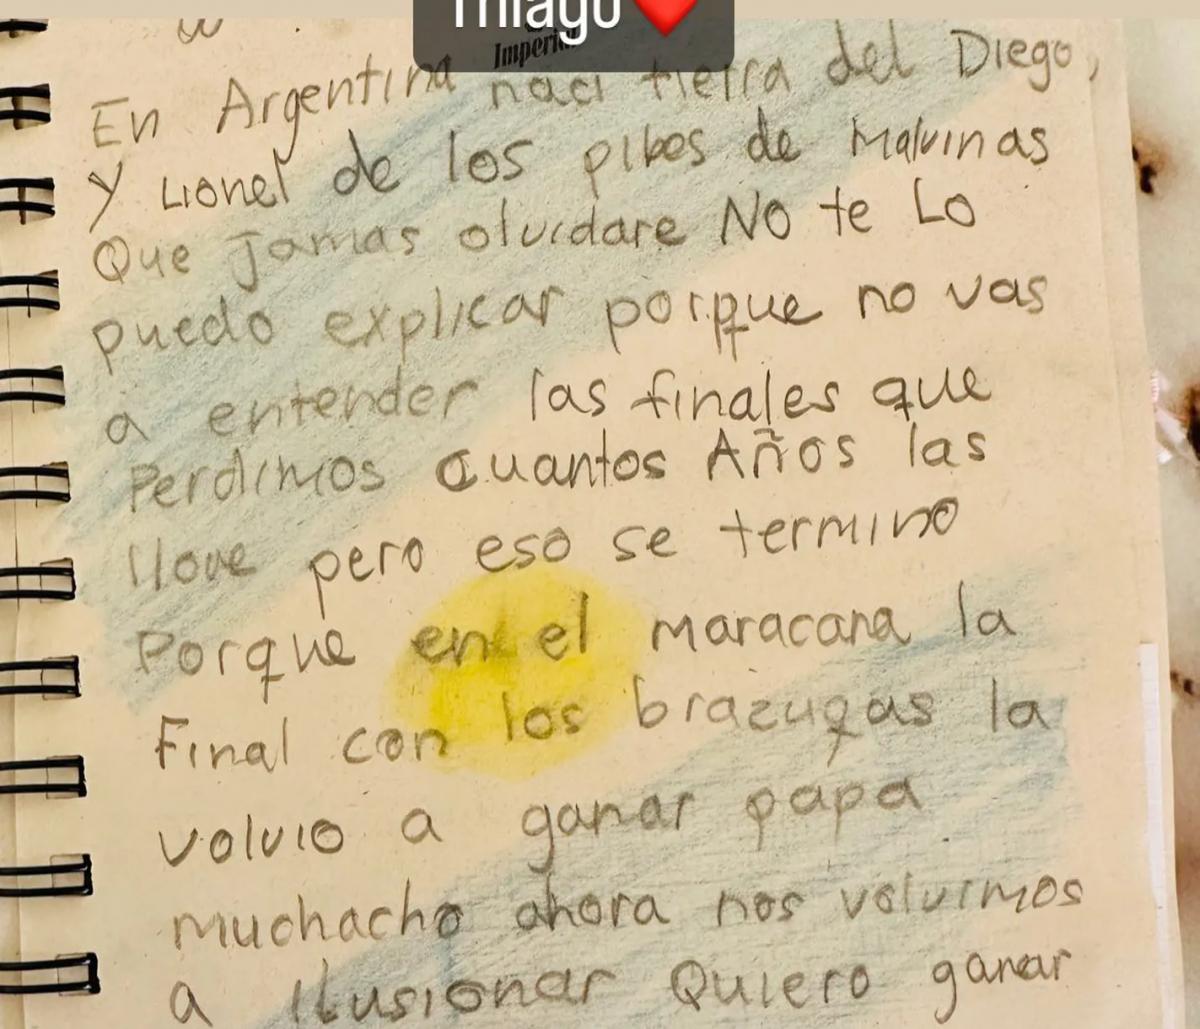 Thiago
Imperi
En Argentina naci tierra del Diego,
y Lionel de los pibes de Malvinas
Que jamas olvidare NO te Lo
puedo explicar porque no vas
a entender las finales que
Perdimos cuantos Años las
llore pero eso se termino
Porque en el maracana la
Final con los brazugas la
volvio a ganar papa
muchacho ahora nos volvimos
a ilusionar Quiero ganar